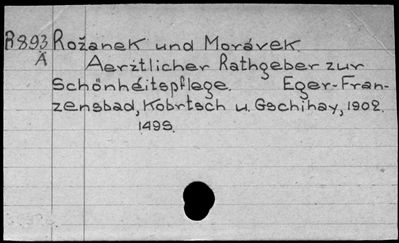 R893 Rožanek und Morávek.
A Aerztlicher Rathgeber zur
Schönheitspflege. Eger-Fran-
zensbad, Kobrtsch u. Gschihay, 1902.
1499.